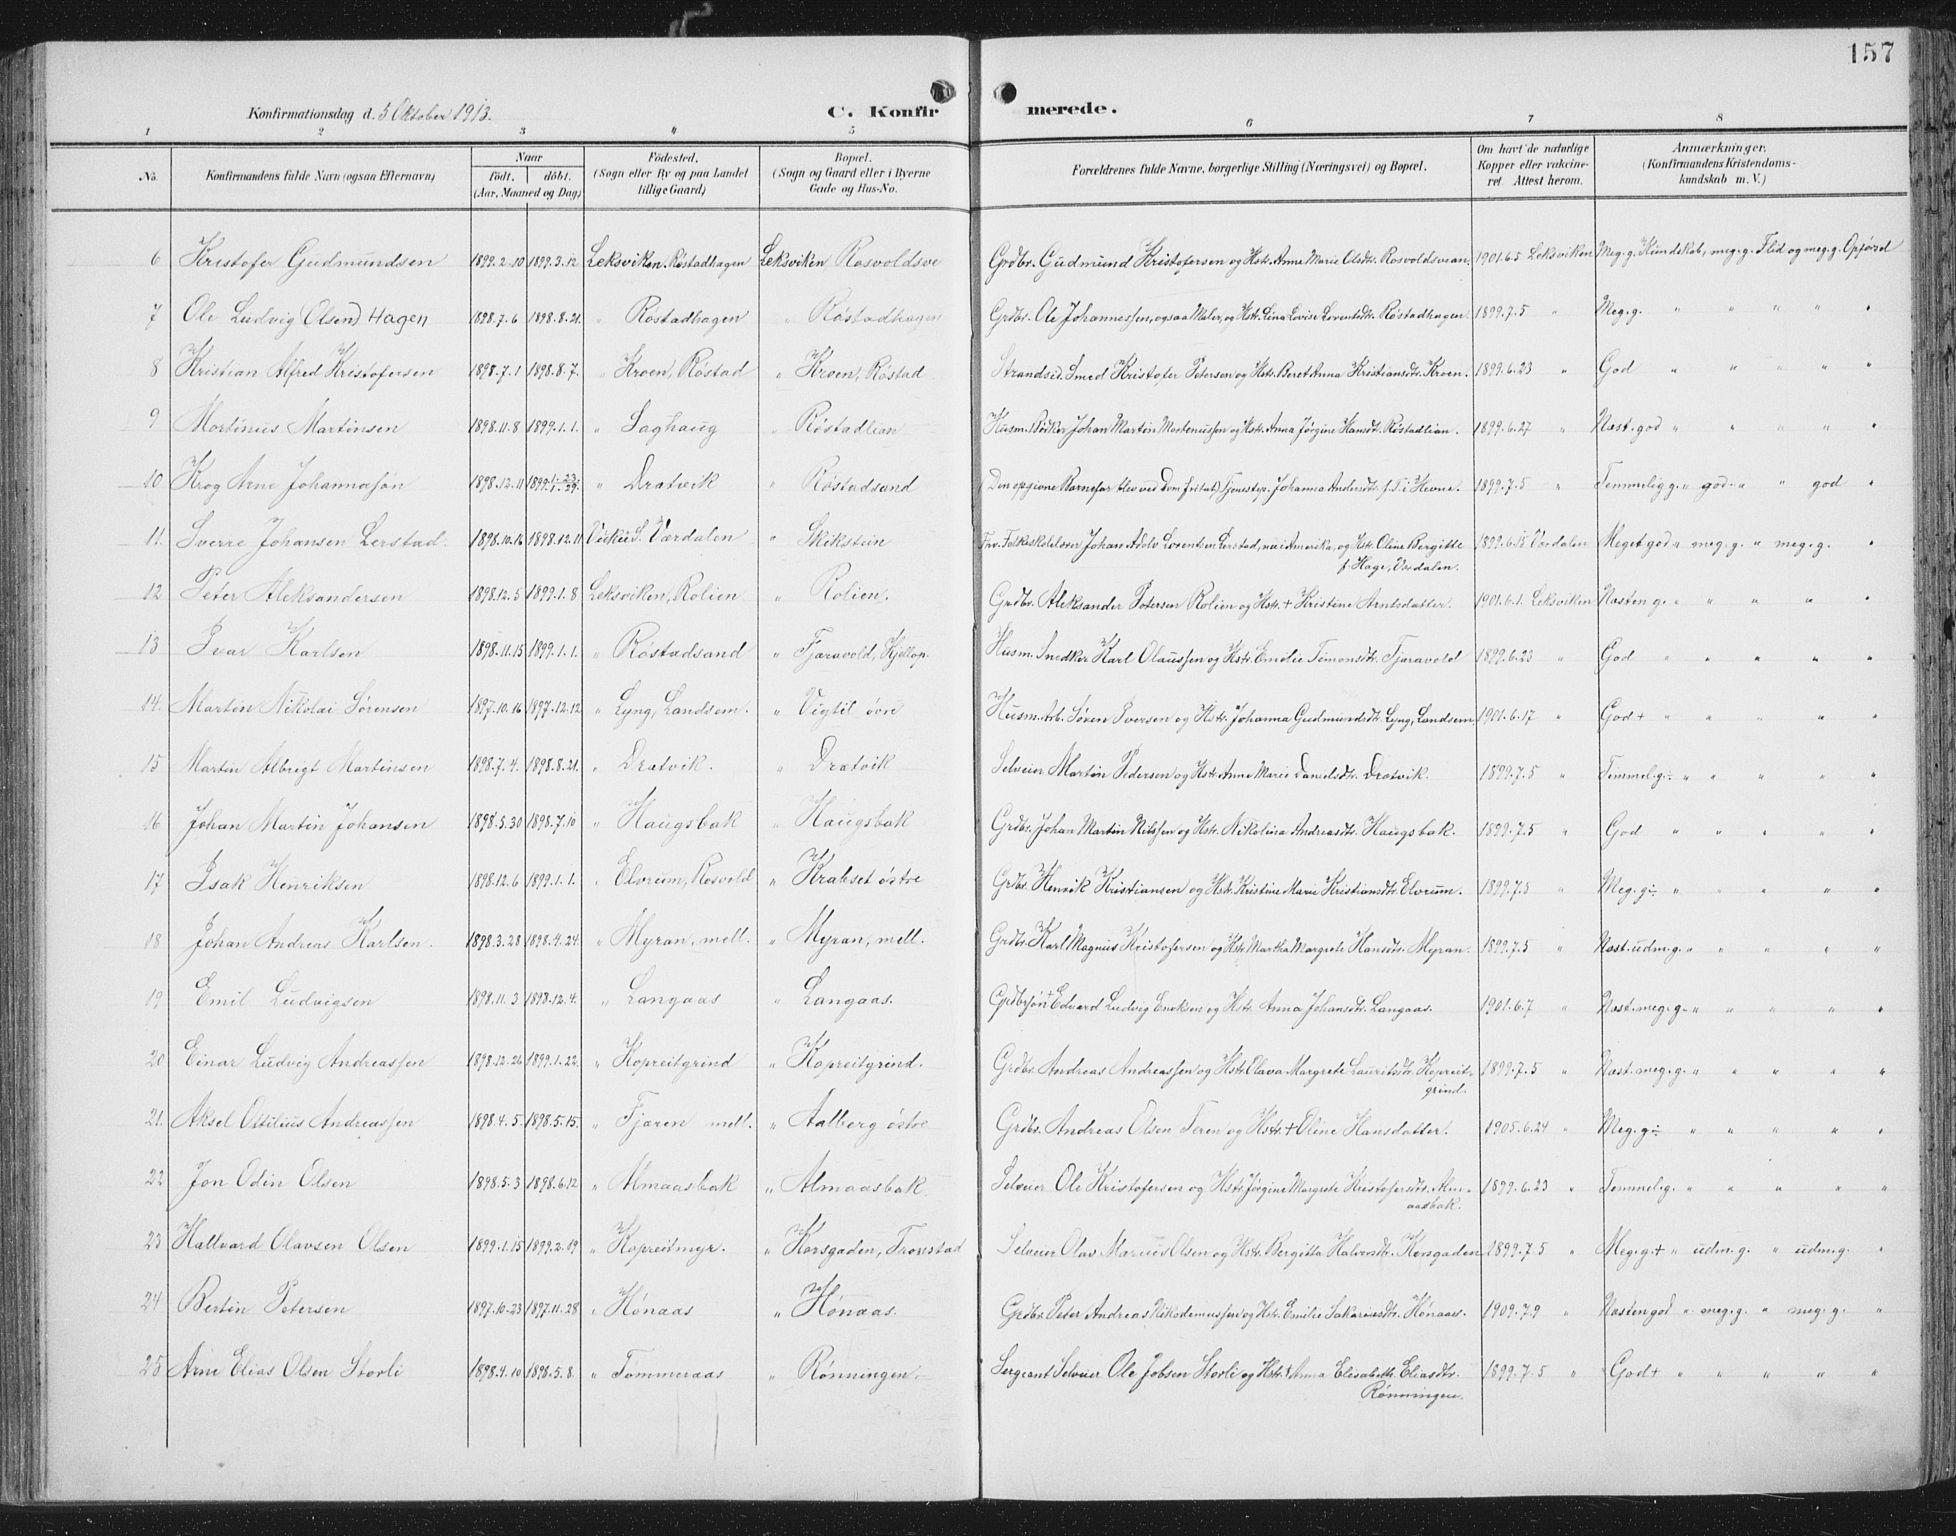 157
Konfirmationsdag d. 5 Oktober 1913.
C. Konfirmerede.
1 2 3 4 5 6 7 8
No. Konfirmandens fulde Navn (ogsaa Efternavn) Naar født. døbt. (Aar, Maaned og Dag) Fødested. (Sogn eller By og paa Landet tillige Gaard) Bopæl. (Sogn og Gaard eller i Byerne Gade og Hus-No. Forældrenes fulde Navne, borgerlige Stilling (Næringsvei) og Bopæl. Om havt de naturlige Kopper eller vakcineret. Attest herom. Anmærkninger. (Konfirmandens Kristendomskundskab m. V.)
6 Kristofer Gudmundsen 1899.2.10 1899.3.12 Leksviken. Røstadhagen Leksviken Rosvoldsve Grdbr. Gudmund Kristofersen og Hstr. Anne Marie Olsdtr. Rosvoldsvean. 1901.6.5 Leksviken Meg. g. Kundskab, meg. g. Flid og meg. g. Opførsel
7 Ole Ludvig (Olsen) Hagen 1898.7.6 1898.8.21. " Røstadhagen " Røstadhagen Grdbr. Ole Johannessen, ogsaa Maler, og Hstr. Lina Lovise Lorentsdtr. Røstadhagen 1899.7.5 " Meg. g. " " " " "
8 Kristian Alfred Kristofersen 1898.7.1 1898.8.7. " Kroen, Røstad " Kroen, Røstad Strandsid. Smed Kristofer Petersen og Hstr. Beret Anna Kristiansdtr. Kroen. 1899.6.23 " God " " " " "
9 Mortinus Martinsen 1898.11.8 1899.1.1. " Saghaug " Røstadlian Husm. Johan Martin Mortenussen og Hstr. Anna Jørgine Hansdtr. Røstadlian. 1899.6.27 " Næst. god " " " " "
10 Krog Arne Johannasøn 1898.12.11 " Dratvik " Røstadsand (Den opgivne Barnefar blev ved Dom fritat) Tjenestep. Johanna Andersdtr. f. T. i Hevne. 1899.7.5 " Temmelig g. " god " " god "
11. Sverre Johansen Lerstad. 1898.10.16 1898.12.11 S. Værdalen " Skikstein Fhv. Folkeskolelærer Johan Adolv Lorentsen Lerstad, nu i Amerika, og Hstr. Oline Bergitte f. Hage, Værdalen. 1899.6.15 Værdalen Meget god " meg. g. " meg. g. "
12 Peter Aleksandersen 1898.12.5 1899.1.8 Leksviken, Rolien " Rolien. Grdbr. Aleksander Petersen Rolien og Hstr. + Kristine Arntsdatter. 1901.6.1. Leksviken Næsten g. " " " " "
13 Ivar Karlsen 1898.11.15 1899.1.1. " Røstadsand " Fjæravold, Kjellop. Husm. Snedker Karl Olaussen og Hstr. Emilie Timonsdtr. Fjæravold 1899.6.23 " God " " " " "
14. Martin Nikolai Sørensen 1897.10.16 1897.12.12 " Lyng, Landsem. " Vigtil øvre Husm. Arb. Søren Iversen og Hstr. Johanna Gudmundsdtr. Lyng, Landsem 1901.6.17 " God + " " " " "
15 Martin Albrigt Martinsen 1898.7.4. 1898.8.21. " Dratvik. " Dratvik Selveier Martin Pedersen og Hstr. Anne Marie Danielsdtr. Dratvik. 1899.7.5 " Temmel. g ÷ " " " " "
16 Johan Martin Johansen 1898.5.30 1898.7.10 " Haugsbak " Haugsbak Grdbr. Johan Martin Nilssen og Hstr. Nikolina Andreasdtr. Haugsbak. 1899.7.5 " God " " " " "
17 Isak Henriksen 1898.12.6 1899.1.1. " Elvrum, Rosvold " Krabset østre Grdbr. Henrik Kristiansen og Hstr. Kristine Marie Kristiansdtr. Elvrum. 1899.7.5 " Meg. g ÷ " " " " "
18 Johan Andreas Karlsen. 1898.3.28 1898.4.24 " Myran, mell. " Myran, mell. Grdbr. Karl Magnus Kristofersen og Hstr. Martha Margrete Hansdtr. Myran. 1899.7.5 " Næst. udm. g. " " " " "
19 Emil Ludvigsen 1898.11.3 1898.12.4. " Langaas " Langaas. Grdbrsøn + Edvard Ludvig Enoksen og Hstr. Anna Johansdtr. Langaas. 1901.6.7 " Næst. meg. g. " " " " "
20 Einar Ludvig Andreassen 1898.12.26 1899.1.22. " Kopreitgrind " Kopreitgrind. Grdbr. Andreas Andreassen og Hstr. Olava Margrete Lauritsdtr. Kopreitgrind. 1899.7.5 " Næst. meg. g. " " " " "
21. Aksel Ottilius Andreassen 1898.4.5. 1898.5.15. " Fjæren mell. " Aalberg østre Grdbr. Andreas Olsen Feren og Hstr. + Oline Hansdatter. 1905.6.24 " Meg. g ÷ " " " " "
22 Jon Odin Olsen 1898.5.3 1898.6.12 " Almaasbak " Almaasbak. Selveier Ole Kristofersen og Hstr. Jørgine Margrete Kristofersdtr. Almaasbak. 1899.6.23 " Temmel. g. " " " " "
23 Hallvard Olavsen Olsen 1899.1.15 1899.2.19 " Kopreitmyr. " Korsgaden, Tronstad Selveier Olav Marius Olsen og Hstr. Bergitta Halvorsdtr. Korsgaden 1899.7.5 " Meg. g + " udm. g. " udm. g. "
24 Bertin Petersen 1897.10.23 1897.11.28 " Hønaas " Hønaas. Grdbr. Peter Andreas Nikodemussen og Hstr. Emilie Sakariasdtr. Hønaas. 1909.7.9 " Næsten god " meg. g. " meg. g. "
25 Arne Elias Olsen Storli 1898.4.10 1898.5.8. " Tømmeraas " Rønningen. Sergeant Selveier Ole Jobsen Storli og Hstr. + Anna Elisabeth Eliasdtr. Rønningen. 1899.7.5 " God + " " " " "